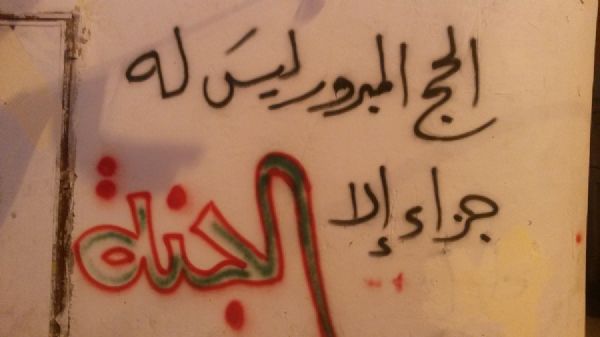 الحج المبرور ليسَ له
جزاء إلا الجنة